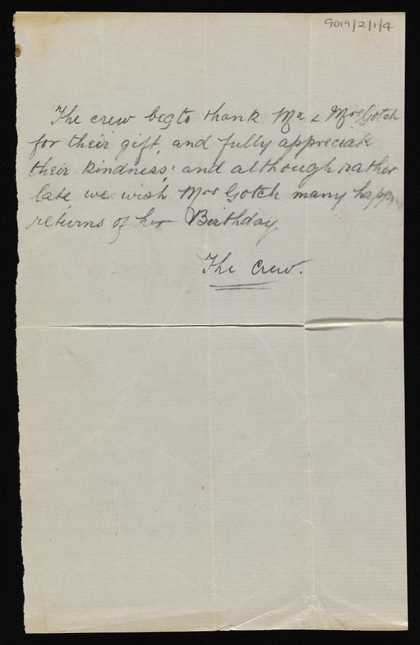 9019/2/1/9
The crew beg to thank Mr & Mrs Gotch
for their gift, and fully appreciate
their kindness; and although rather
late we wish Mrs Gotch many happy
returns of her Birthday.
The Crew.